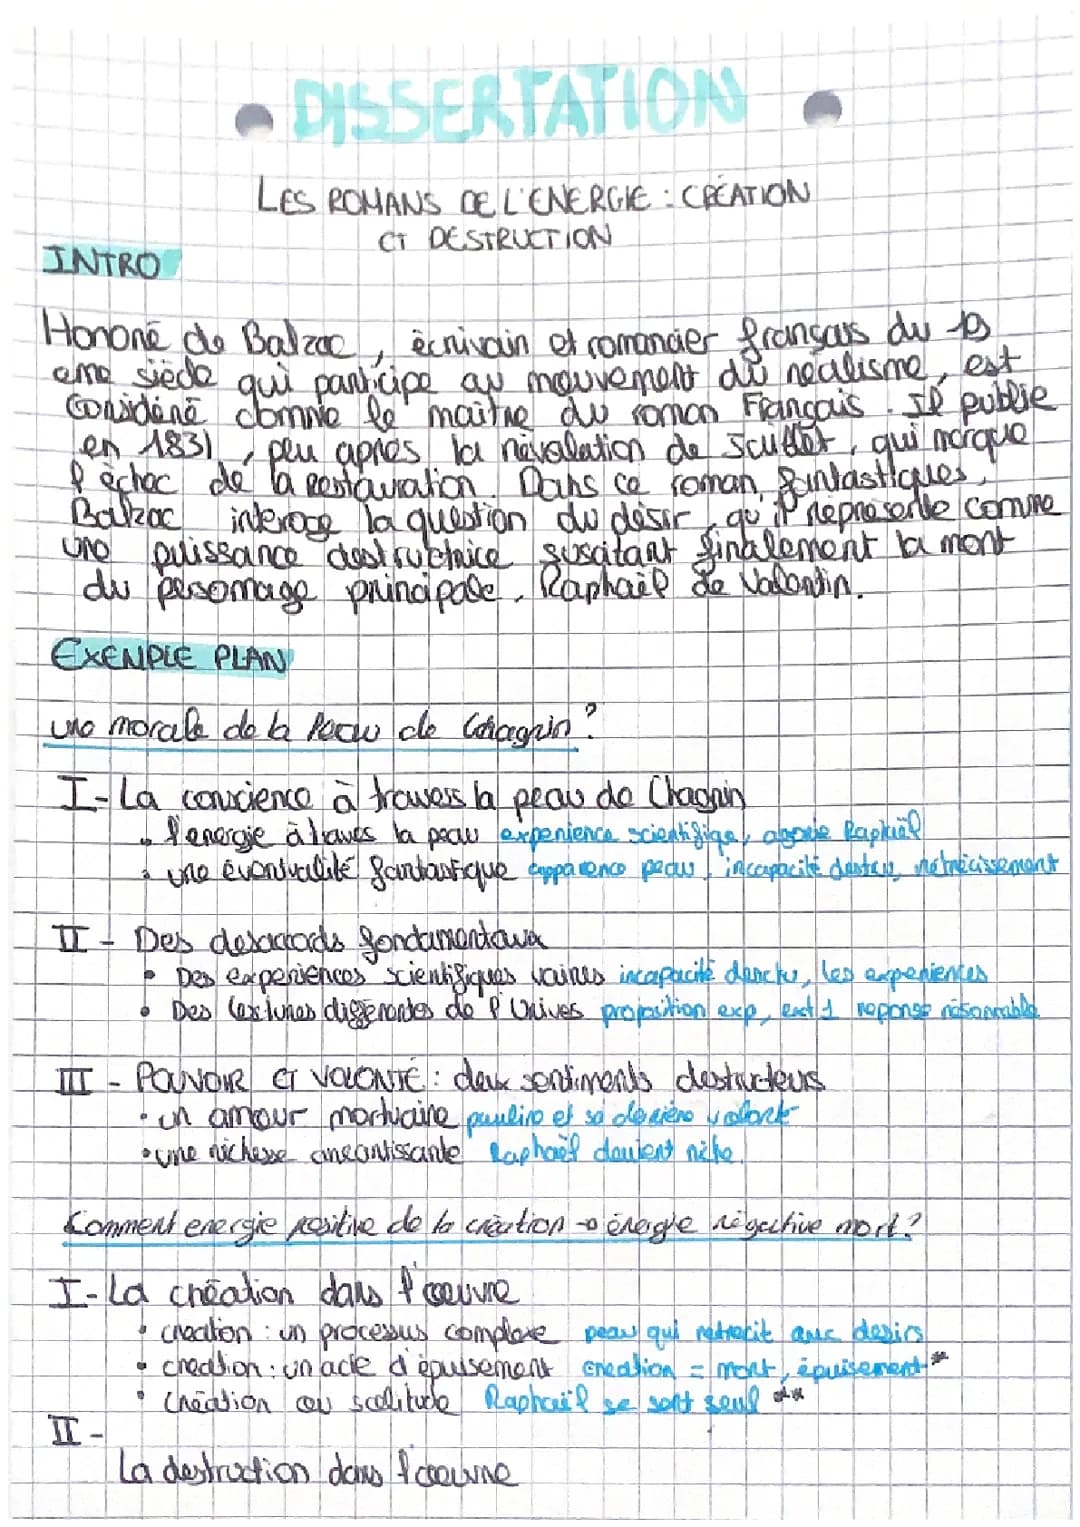 DISSERTATION
LES ROMANS DE L'ENERGIE : CRÉATION
ET DESTRUCTION
INTRO
Honoré de Balzac, écrivain et romancier français du 19
eme siècle qui participe au mouvement du réalisme, est
Considéré comme le maître du roman Français. Il publie
en 1831, peu après la révolution de Juillet, qui marque
l'échec de la Restauration. Dans ce roman fantastiques,
Balzac interoge la question du désir, qu'il représente comme
une puissance destructrice suscitant finalement la mort
du personage principale, Raphaël de Valentin.
EXEMPLE PLAN
une morale de la Peau de Chagrin ?
I- La conscience à travers la peau de Chagrin
• l'energie à travers la peau experience scientifique, agonie Raphaël
• une éventualité fantastique apparence peau, incapacité destru, rétrécissement
II - Des desaccords fondamentaux
• Des experiences scientifiques vaines incapacité, les experiences
• Des lectures différentes de l'Univers proposition exp, 1 reponse raisonnable
III - POUVOIR ET VOLONTÉ : deux sentiments destructeurs
• un amour mortuaire pauline et sa dernière volonté
• une richesse aneantissante Raphaël devient riche
Comment energie positive de la création → énergie négective mort ?
I- La création dans l'œuvre
• creation : un processus complexe peau qui retrecit avec desirs
• creation : un acte d'épuisement creation = mort, épuisement *
• Création ou scolitude Raphaël se sent seul **
II -
La destruction dans l'oeuvre